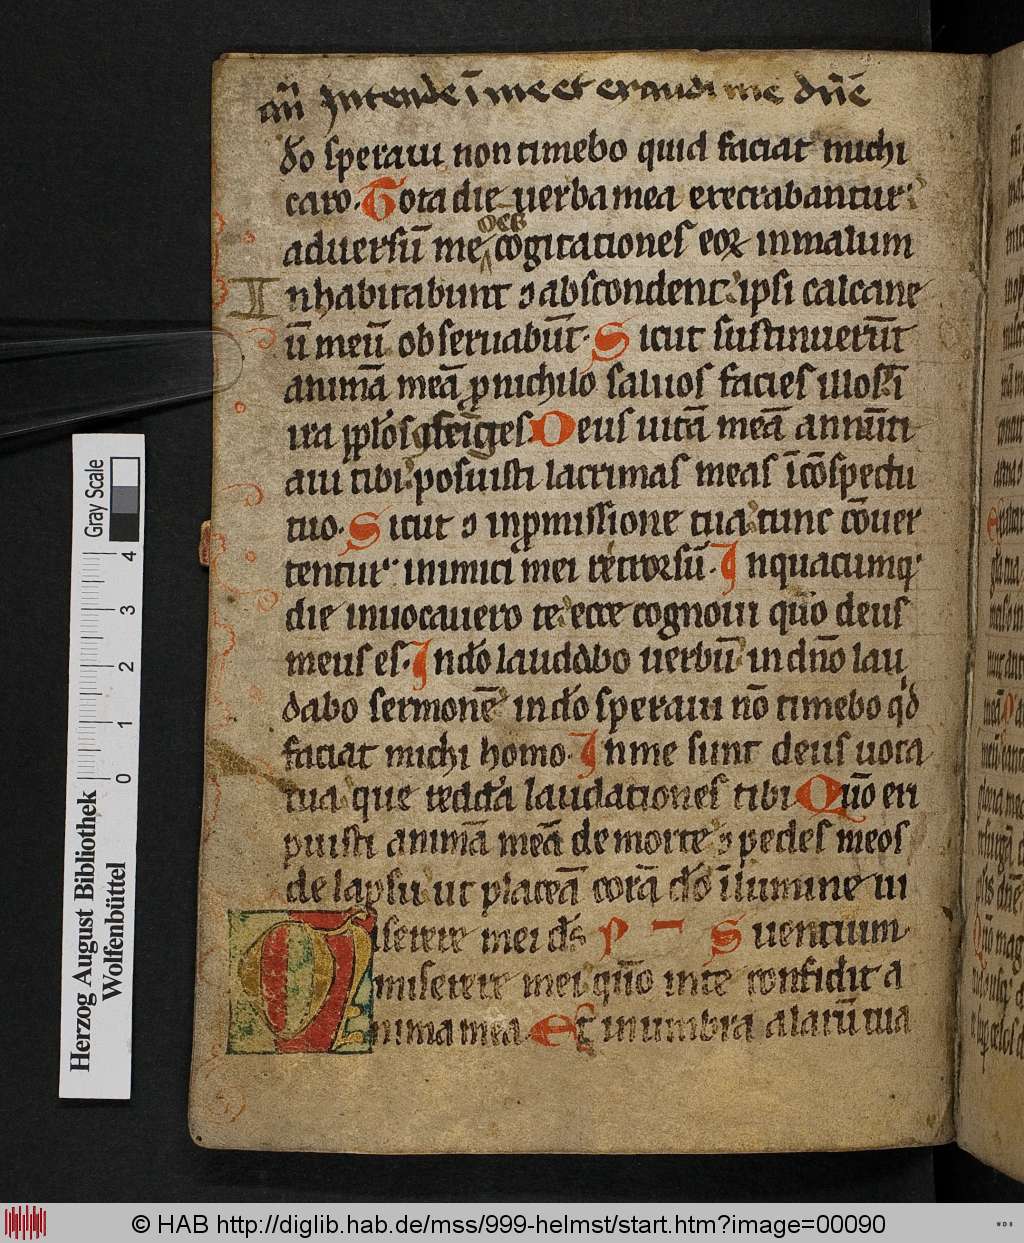 an̄ Intende ī me et exaudi me dn̄e
do speraui non timebo quid faciat michi
caro. Tota die uerba mea execrabantur
aduersū me oēs cogitationes eoꝝ in malum
Inhabitabunt ⁊ abscondent ipsi calcane
ū meū obseruabūt. Sicut sustinuerūt
animā meā ꝓ nichilo saluos facies illos ī
ira pplos Deus uitā meā annūti
aui tibi posuisti lacrimas meas ī cōspectu
tuo. Sicut ⁊ in ꝓmissione tua tunc cōuer
tentur inimici mei retrorsū. In quacumq
die inuocauero te ecce cognoui qūo deus
meus es. In dō laudabo uerbū in dn̄o lau
dabo sermonē in dō speraui nō timebo qd
faciat michi homo. In me sunt deus uota
tua que reddā laudationes tibi Qūo eri
puisti animā meā de morte ⁊ pedes meos
de lapsu ut placeā corā dō ī lumine ui
Miserere mei ds P Suentium
miserere mei qūo in te confidit a
nima mea Et in umbra alarū tua
Herzog August Bibliothek
Wolfenbüttel
Gray Scale
0 1 2 3 4
© HAB http://diglib.hab.de/mss/999-helmst/start.htm?image=00090